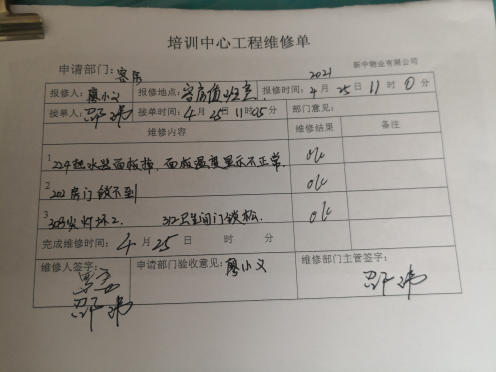 培训中心工程维修单
申请部门：客房 新中物业有限公司
2021
报修人：廖小义 报修地点：客房值班室 报修时间：4月25日11时0分
接单人：邵伟 接单时间：4月25日11时05分 部门意见：
维修内容 维修结果 备注
1 224热水器面板掉，面板温度显示不正常. ok
2 202房门锁不到 ok
3 308灯坏2. 312卫生间门锁松. ok
完成维修时间：4月25日 时 分
维修人签字： 申请部门验收意见：廖小义 维修部门主管签字：
邵伟 邵伟